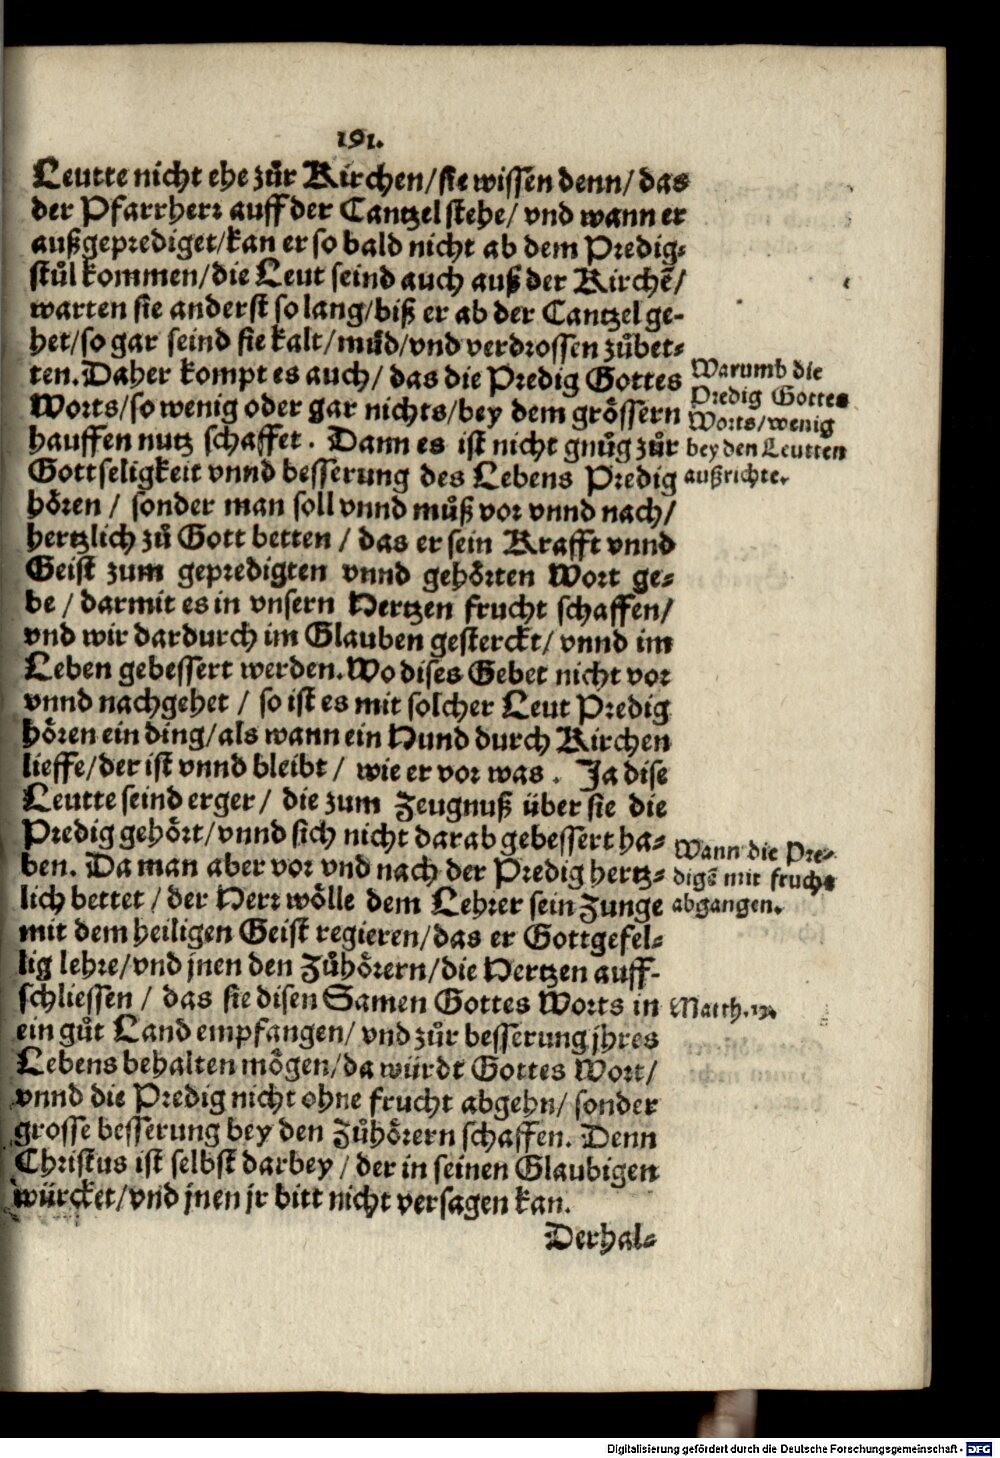 191.
Leutte nicht ehe zůr Kirchen/sie wissen denn/das
der Pfarrherr auff der Cantzel stehe/ vnd wann er
außgeprediget/kan er so bald nicht ab dem Predig-
stůl kommen/die Leut seind auch auß der Kirchē/
warten sie anderst so lang/biß er ab der Cantzel ge-
het/so gar seind sie kalt/můd/vnd verdrossen zůbet-
ten. Daher kompt es auch/ das die Predig Gottes
Worts/so wenig oder gar nichts/bey dem grössern
hauffen nutz schaffet. Dann es ist nicht gnůg zůr
Gottseligkeit vnnd besserung des Lebens Predig
hören / sonder man soll vnnd můß vor vnnd nach/
hertzlich zů Gott betten / das er sein Krafft vnnd
Geist zum gepredigten vnnd gehörten Wort ge-
be / darmit es in vnsern Hertzen frucht schaffen/
vnd wir dardurch im Glauben gesterckt/ vnnd im
Leben gebessert werden. Wo dises Gebet nicht vor
vnnd nachgehet / so ist es mit solcher Leut Predig
hören ein ding/als wann ein Hund durch Kirchen
lieffe/der ist vnnd bleibt / wie er vor was. Ja dise
Leutte seind erger/ die zum Zeugnuß über sie die
Predig gehört/vnnd sich nicht darab gebessert ha-
ben. Da man aber vor vnd nach der Predig hertz-
lich bettet / der Herr wölle dem Lehrer sein Zunge
mit dem heiligen Geist regieren/das er Gottgefel-
lig lehre/vnd jnen den Zůhörern/die Hertzen auff-
schliessen / das sie disen Samen Gottes Worts in
ein gůt Land empfangen/ vnd zůr besserung jhres
Lebens behalten mögen/da würdt Gottes Wort/
vnnd die Predig nicht ohne frucht abgehn/ sonder
grosse besserung bey den Zůhörern schaffen. Denn
Christus ist selbst darbey / der in seinen Glaubigen
würcket/vnd jnen jr bitt nicht versagen kan.
Derhal-
Warumb die
Predig Gottes
Worts/wenig
bey den Leutten
außrichte.
Wann die Pre-
digē mit frucht
abgangen.
Matth. 13.
Digitalisierung gefördert durch die Deutsche Forschungsgemeinschaft - DFG